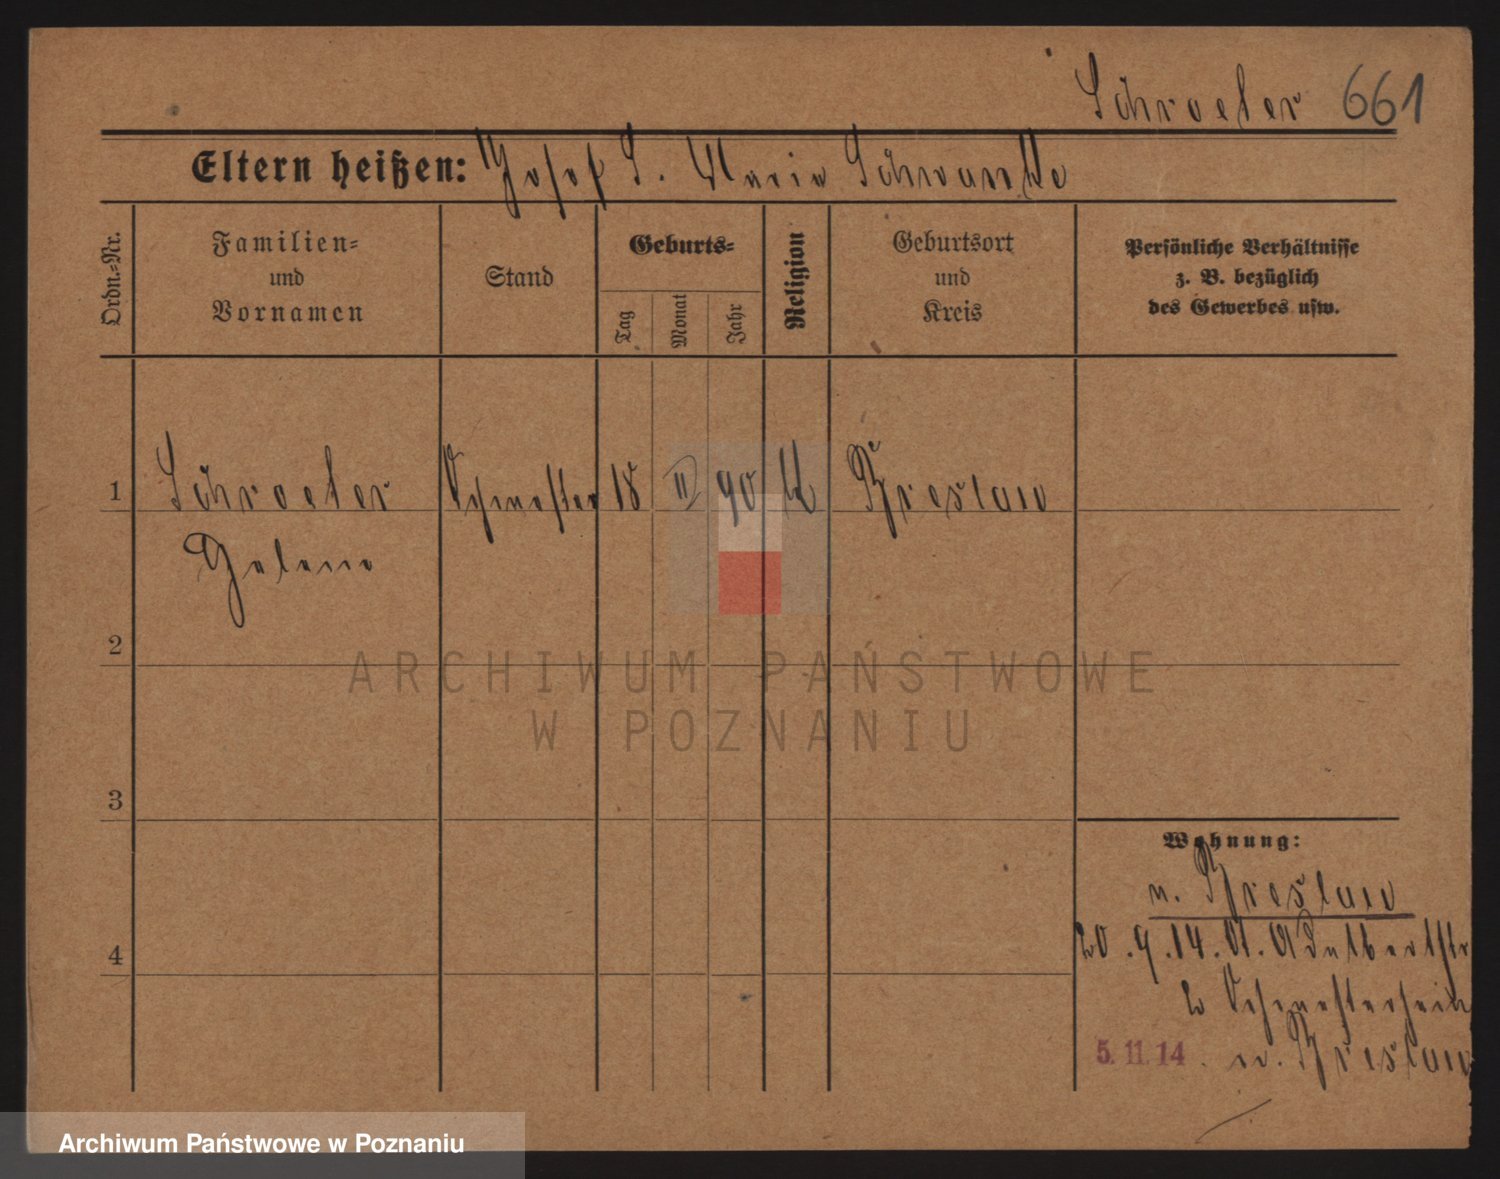 Schroeter 661
Eltern heißen: Josef S. Maria Schwantke
Ordn.-Nr.
Familien-
und
Vornamen
Stand
Geburts-
Tag
Monat
Jahr
Religion
Geburtsort
und
Kreis
Persönliche Verhältnisse
z. B. bezüglich
des Gewerbes usw.
1 Schroeter Schwester 18 II 90 Breslau
Helene
2
ARCHIWUM PAŃSTWOWE
W POZNANIU
3
Wohnung:
n. Breslau
4
20.9.14. Adalbertstr
Schwesterheim
5. 11. 14. n. Breslau
Archiwum Państwowe w Poznaniu